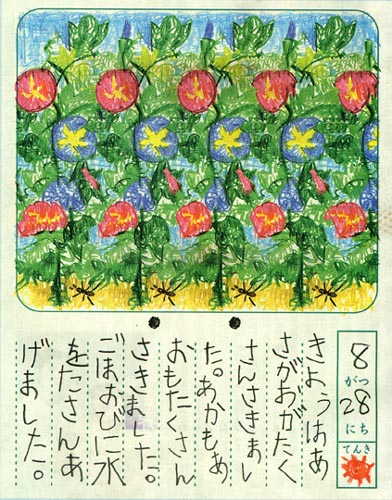 8
がつ
28
にち
てんき
きようはあ
さがおがたく
さんさきまし
た。あかもあ
おもたくさん
さきました。
ごほおびに水
をたさんあ
げました。